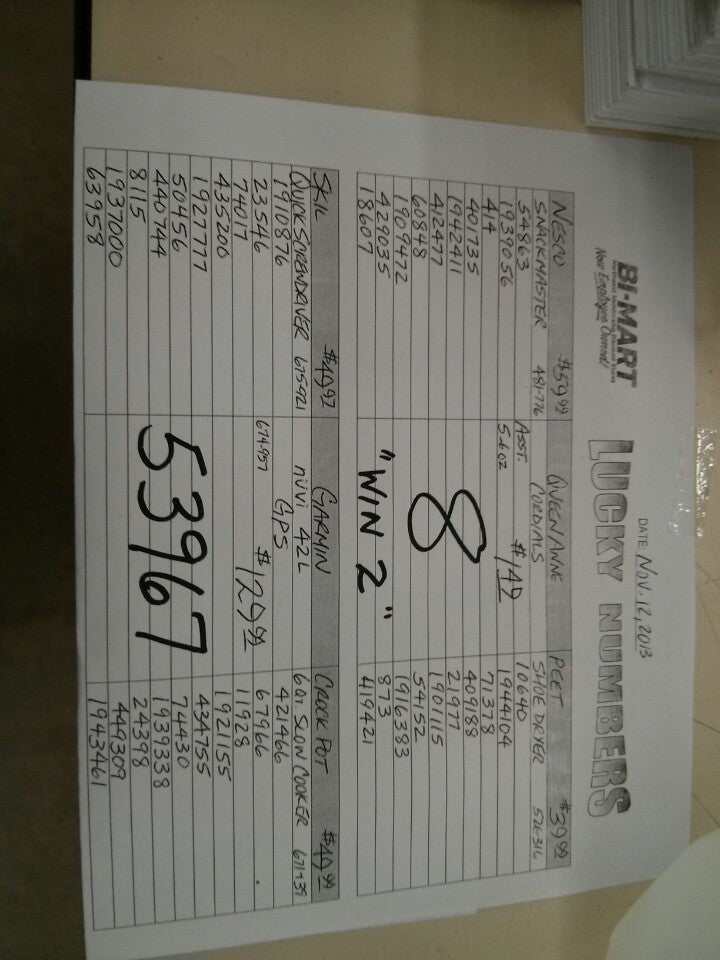 BI-MART
Now Employee Owned!
LUCKY NUMBERS
DATE: NOV. 12, 2013
NESCO $59.99
SNACKMASTER 481-776
54863
1939056
414
401735
1942411
412477
60848
1909472
429035
18607
QUEEN ANNE
CORDIALS
ASST.
5-602 $1.49
8
"WIN 2"
PEET $39.99
SHOE DRYER 526316
10640
1944104
71378
409188
21977
1901115
54152
1916383
873
419421
SKIL $49.97
QUICK SCREWDRIVER 675-421
1910876
23546
74017
435200
1927777
50456
440744
8115
1937000
63958
GARMIN
nüvi 42L
GPS
674-957 $129.99
53967
CROCK POT $49.99
6QT SLOW COOKER
421466
67966
11928
1921155
434755
74430
1939338
24398
449309
1943461